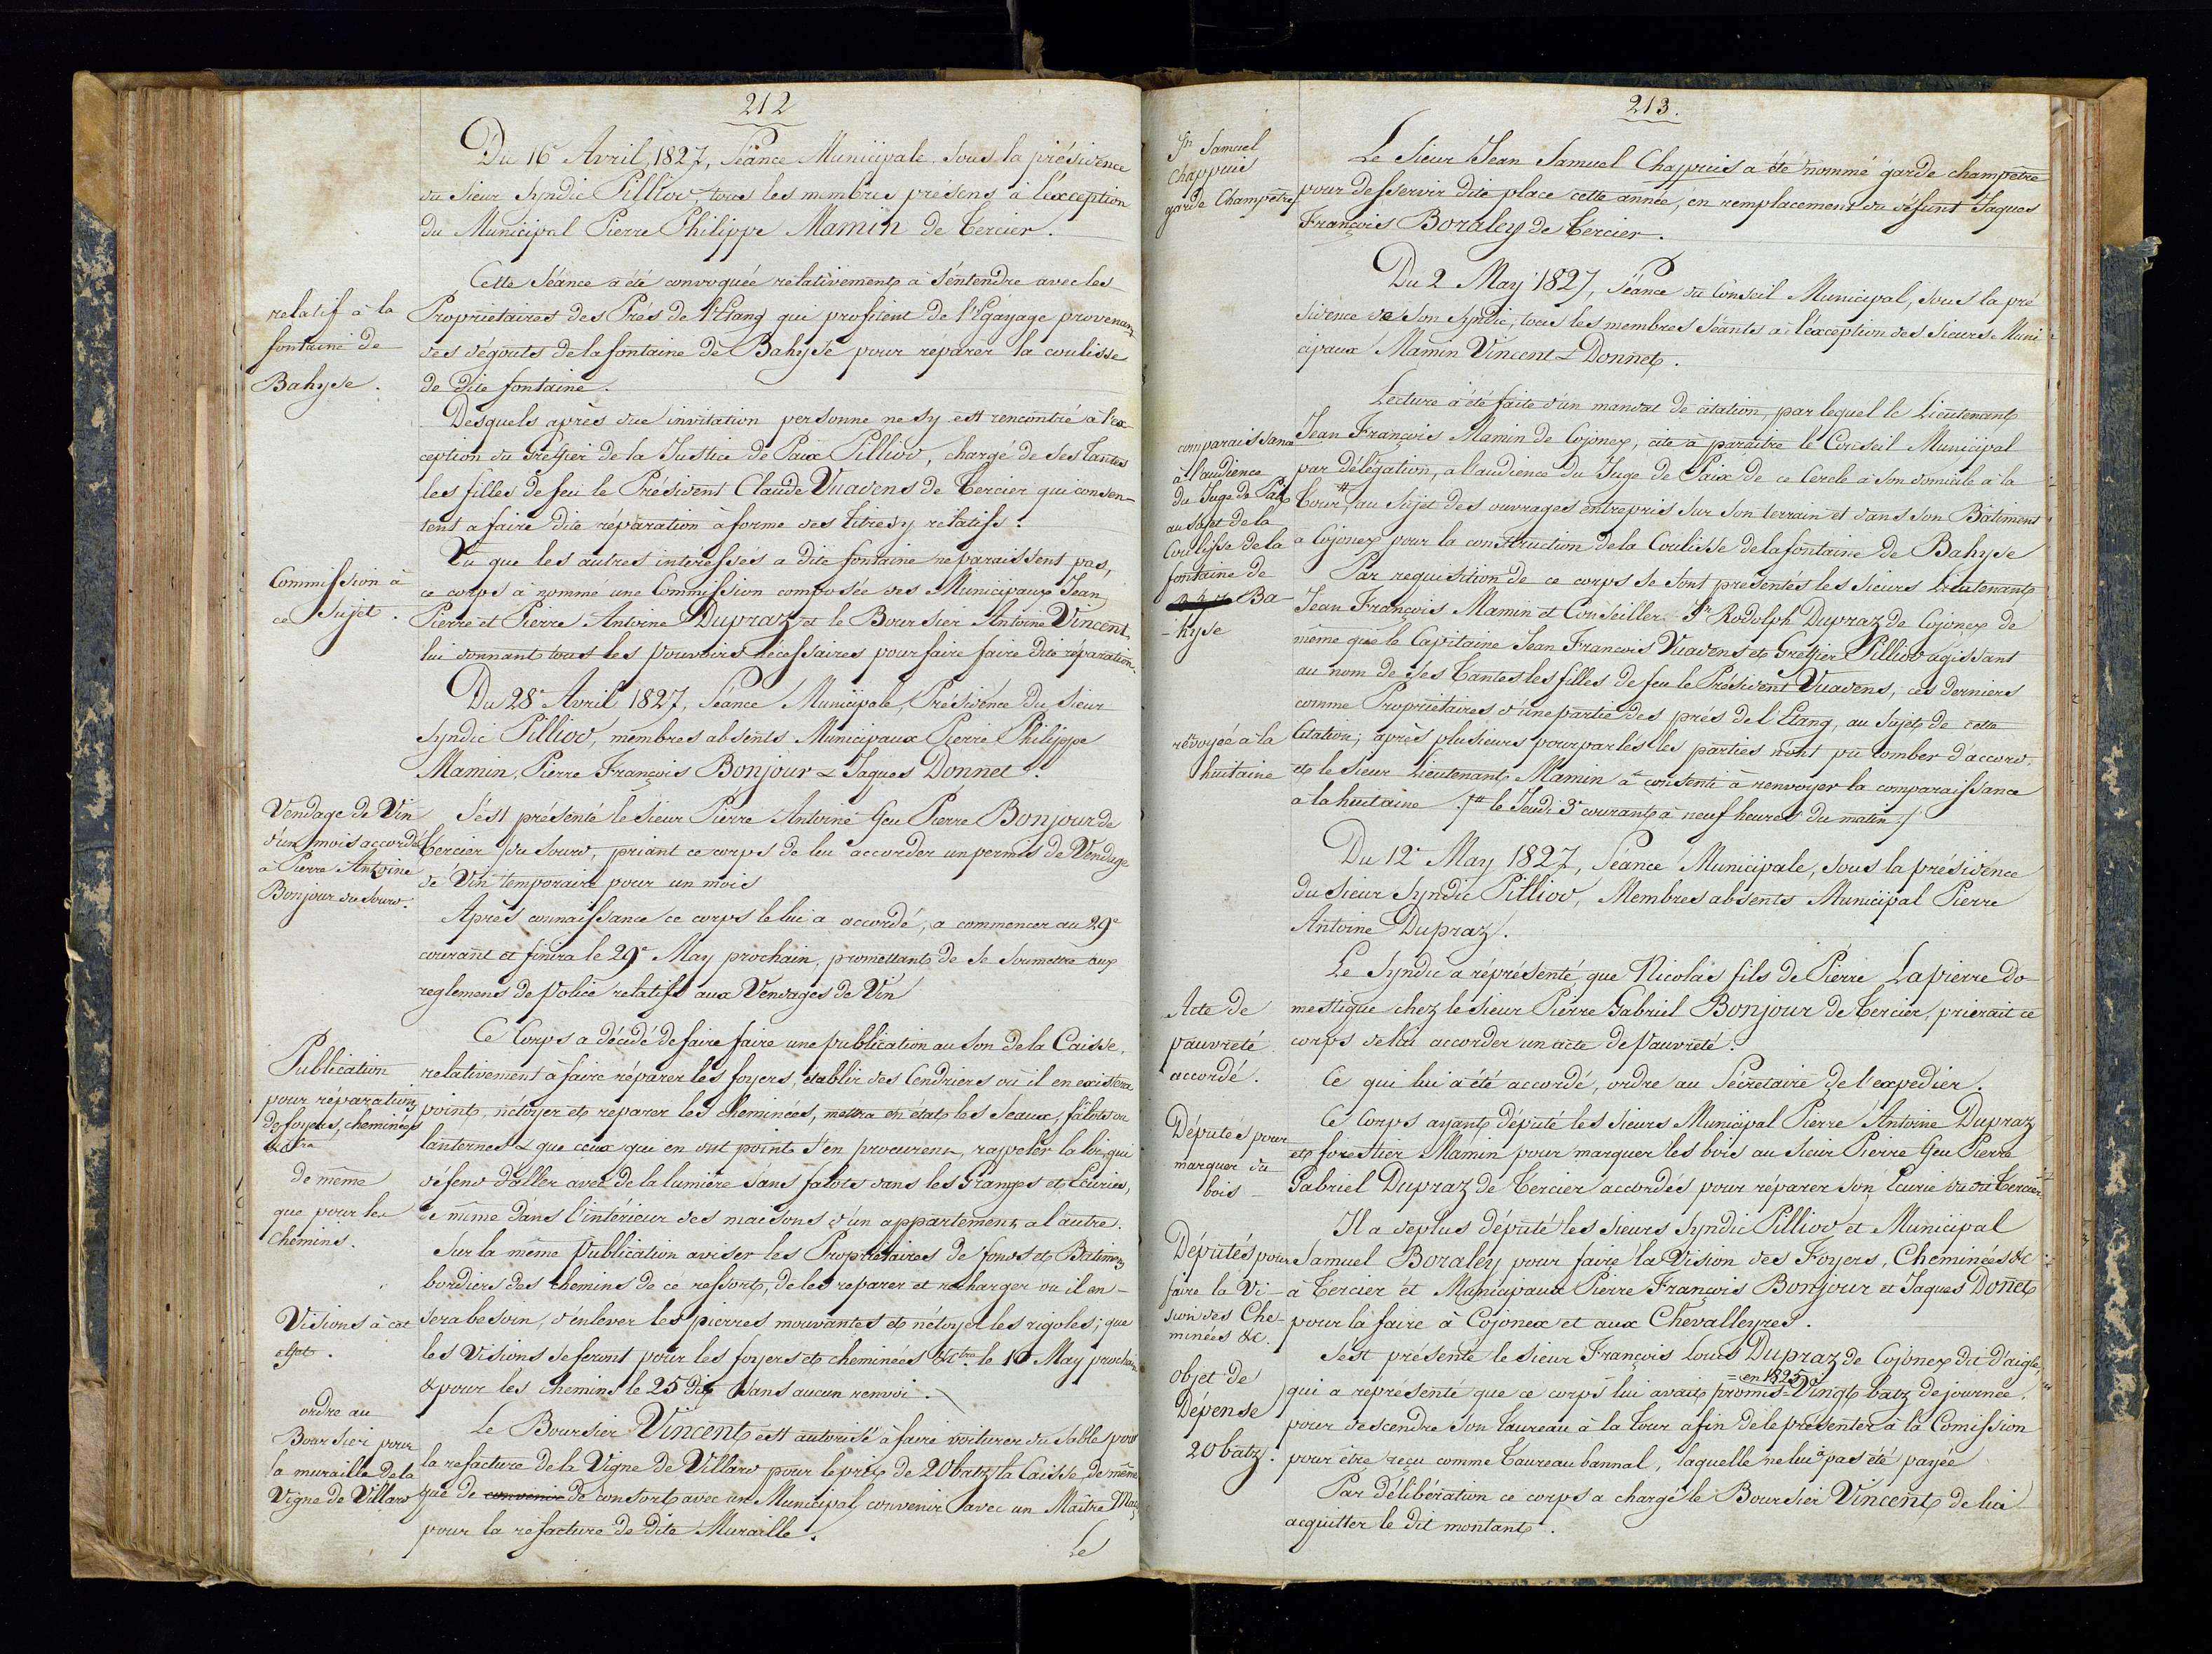 212
Du 16 Avril, 1827, Séance Municipale, sous la présidence
du Sieur Syndic Pilliod, tous les membres présens à l'éxception
du Municipal Pierre Philippe Mamin de Tercier.
relatif à la
fontaine de
Bahyse.
Cette Séance a été convoquée relativement à s'entendre avec les
Propriétaires des Prés de l'Etang qui profitent de l'Egayage provenant
des dégouts de la fontaine de Bahyse pour reparer la coulisse
de dite fontaine.
Desquels après due invitation personne ne s'y est rencontré à l'ex-
ception du Greffier de la Justice de Paix Pilliod, chargé de ses Tantes
les filles de feu le Président Claude Vuadens de Tercier qui consen-
tent a faire dite réparation à forme des titres y relatifs.
Commission à
ce Sujet.
Vu que les autres intéressés a dite fontaine ne paraissent pas,
ce corps à nommé une Commission composée des Municipaux Jean
Pierre et Pierre Antoine Dupraz et le Boursier Antoine Vincent,
lui donnant tous les pouvoirs nécessaires pour faire faire dite réparation.
Du 28e Avril 1827, Séance Municipale, Présidence du Sieur
Syndic Pilliod, membres absents Municipaux Pierre Philippe
Mamin, Pierre François Bonjour & Jaques Donnet.
Vendage de Vin
d'un mois accordé
à Pierre Antoine
Bonjour du Sourd.
S'est présenté le Sieur Pierre Antoine feu Pierre Bonjour de
Tercier du Sourd, priant ce corps de lui accorder un permis de Vendage
de Vin temporaire pour un mois
Après connaissance ce corps le lui a accordé, a commencer au 29e
courant et finira le 29e May prochain, promettant de se soumettre aux
reglemens de police relatifs aux Vendages de Vin
Publication
pour réparation
de foyers, cheminées
de même
que pour les
chemins.
Ce Corps a décidé de faire faire une publication au son de la Caisse,
relativement à faire réparer les foyers, établir des Cendriers où il en existera
point, nétoyer et reparer les cheminées, mettra en état les Seaux, falots ou
lanternes & que ceux qui en ont point s'en procurent, rapeler la loi qui
défend d'aller avec de la lumière sans falots dans les Granges et Ecuries,
de même dans l'intérieur des maisons d'un appartement a l'autre.
Sur la même publication aviser les Propriétaires de fonds et Batimens
bordiers des chemins de ce ressort, de les reparer et recharger ou il en
Visions à cet
objet.
sera besoin, d'enlever les pierres mouvantes et nétoyer les rigoles; que
les Visions se feront pour les foyers et cheminées &ctra le 10 May prochain
& pour les chemins le 25 dit sans aucun renvoi.
ordre au
Boursier pour
la muraille de la
Vigne de Villard
Le Boursier Vincent est autorisé à faire voiturer du sable pour
la refacture de la Vigne de Villard pour le prix de 20 batz la Caisse, de même
que de convenir de consort avec un Municipal convenir avec un Maître Maç
pour la réfacture de dite Muraille.
Le
213.
Jn Samuel
Chappuis
garde Champêtre
Le Sieur Jean Samuel Chappuis a été nommé garde champêtre
pour desservir dite place cette année, en remplacement du défunt Jaques
François Boraley de Tercier.
Du 2 May 1827, Séance du Conseil Municipal, sous la pré
sidence de son Syndic, tous les membres séants à l'éxception des Sieurs Muni
cipaux Mamin Vincent & Donnet.
comparaissance
à l'audience
du Juge de Paix
au sujet de la
Coulisse de la
fontaine de
Ba-
-hyse
Lecture à été faite d'un mandat de citation, par lequel le Lieutenant
Jean François Mamin de Cojonex, cite à paraitre le Conseil Municipal
par délégation, a l'audience du Juge de Paix de ce Cercle à son domicile à la
Tour, au sujet des ouvrages entrepris sur son terrain et dans son Bâtiment
a Cojonex pour la construction de la Coulisse de la fontaine de Bahyse
Par requisition de ce corps se sont presentés les Sieurs Lieutenant
Jean François Mamin et Conseiller Jn Rodolph Dupraz de Cojonex de
même que le Capitaine Jean Francois Vuadens et Greffier Pilliod agissant
au nom de ses Tantes les filles de feu le Président Vuadens, ces derniers
comme Propriétaires d'une partie des prés de l'Etang, au sujet de cette
renvoyée à la
huitaine
Citation; après plusieurs pourparlés les parties n'ont pu tomber d'accord,
et le Sieur Lieutenant Mamin à consenti à renvoyer la comparaissance
a la huitaine le Jeudi 3e courant à neuf heures du matin
Du 12e May 1827, Séance Municipale, sous la présidence
du Sieur Syndic Pilliod, Membres absents Municipal Pierre
Antoine Dupraz.
Acte de
pauvreté
accordé.
Le Syndic a réprésenté, que Nicolas fils de Pierre Lapierre do-
mestique chez le Sieur Pierre Gabriel Bonjour de Tercier, prierait ce
corps de lui accorder un acte de pauvreté.
Ce qui lui a été accordé, ordre au Sécretaire de l'expedier.
Députés pour
marquer du
bois
Ce Corps ayant député les Sieurs Municipal Pierre Antoine Dupraz
et forestier Mamin pour marquer les bois au Sieur Pierre feu Pierre
Gabriel Dupraz de Tercier accordés pour réparer son Ecurie du dit Tercier
Députés pour
faire la Vi-
sion des Che-
minées &c.
Il a deplus député les Sieurs Syndic Pilliod et Municipal
Samuel Boraley pour faire la Vision des Foyers, Cheminées &c
à Tercier et Municipaux Pierre François Bonjour et Jaques Donet
pour la faire à Cojonex et aux Chevalleyres.
objet de
Dépense
20 batz.
S'est présenté le Sieur François Louis Dupraz de Cojonex dit d'aigle,
qui a représenté que ce corps lui avait promis =en 1825= Vingt batz de journée
pour descendre son taureau à la Tour afin de le présenter à la Comission
pour être reçu comme Taureau bannal, laquelle ne lui a pas été payée
Par délibération ce corps a chargé le Boursier Vincent de lui
acquitter le dit montant.